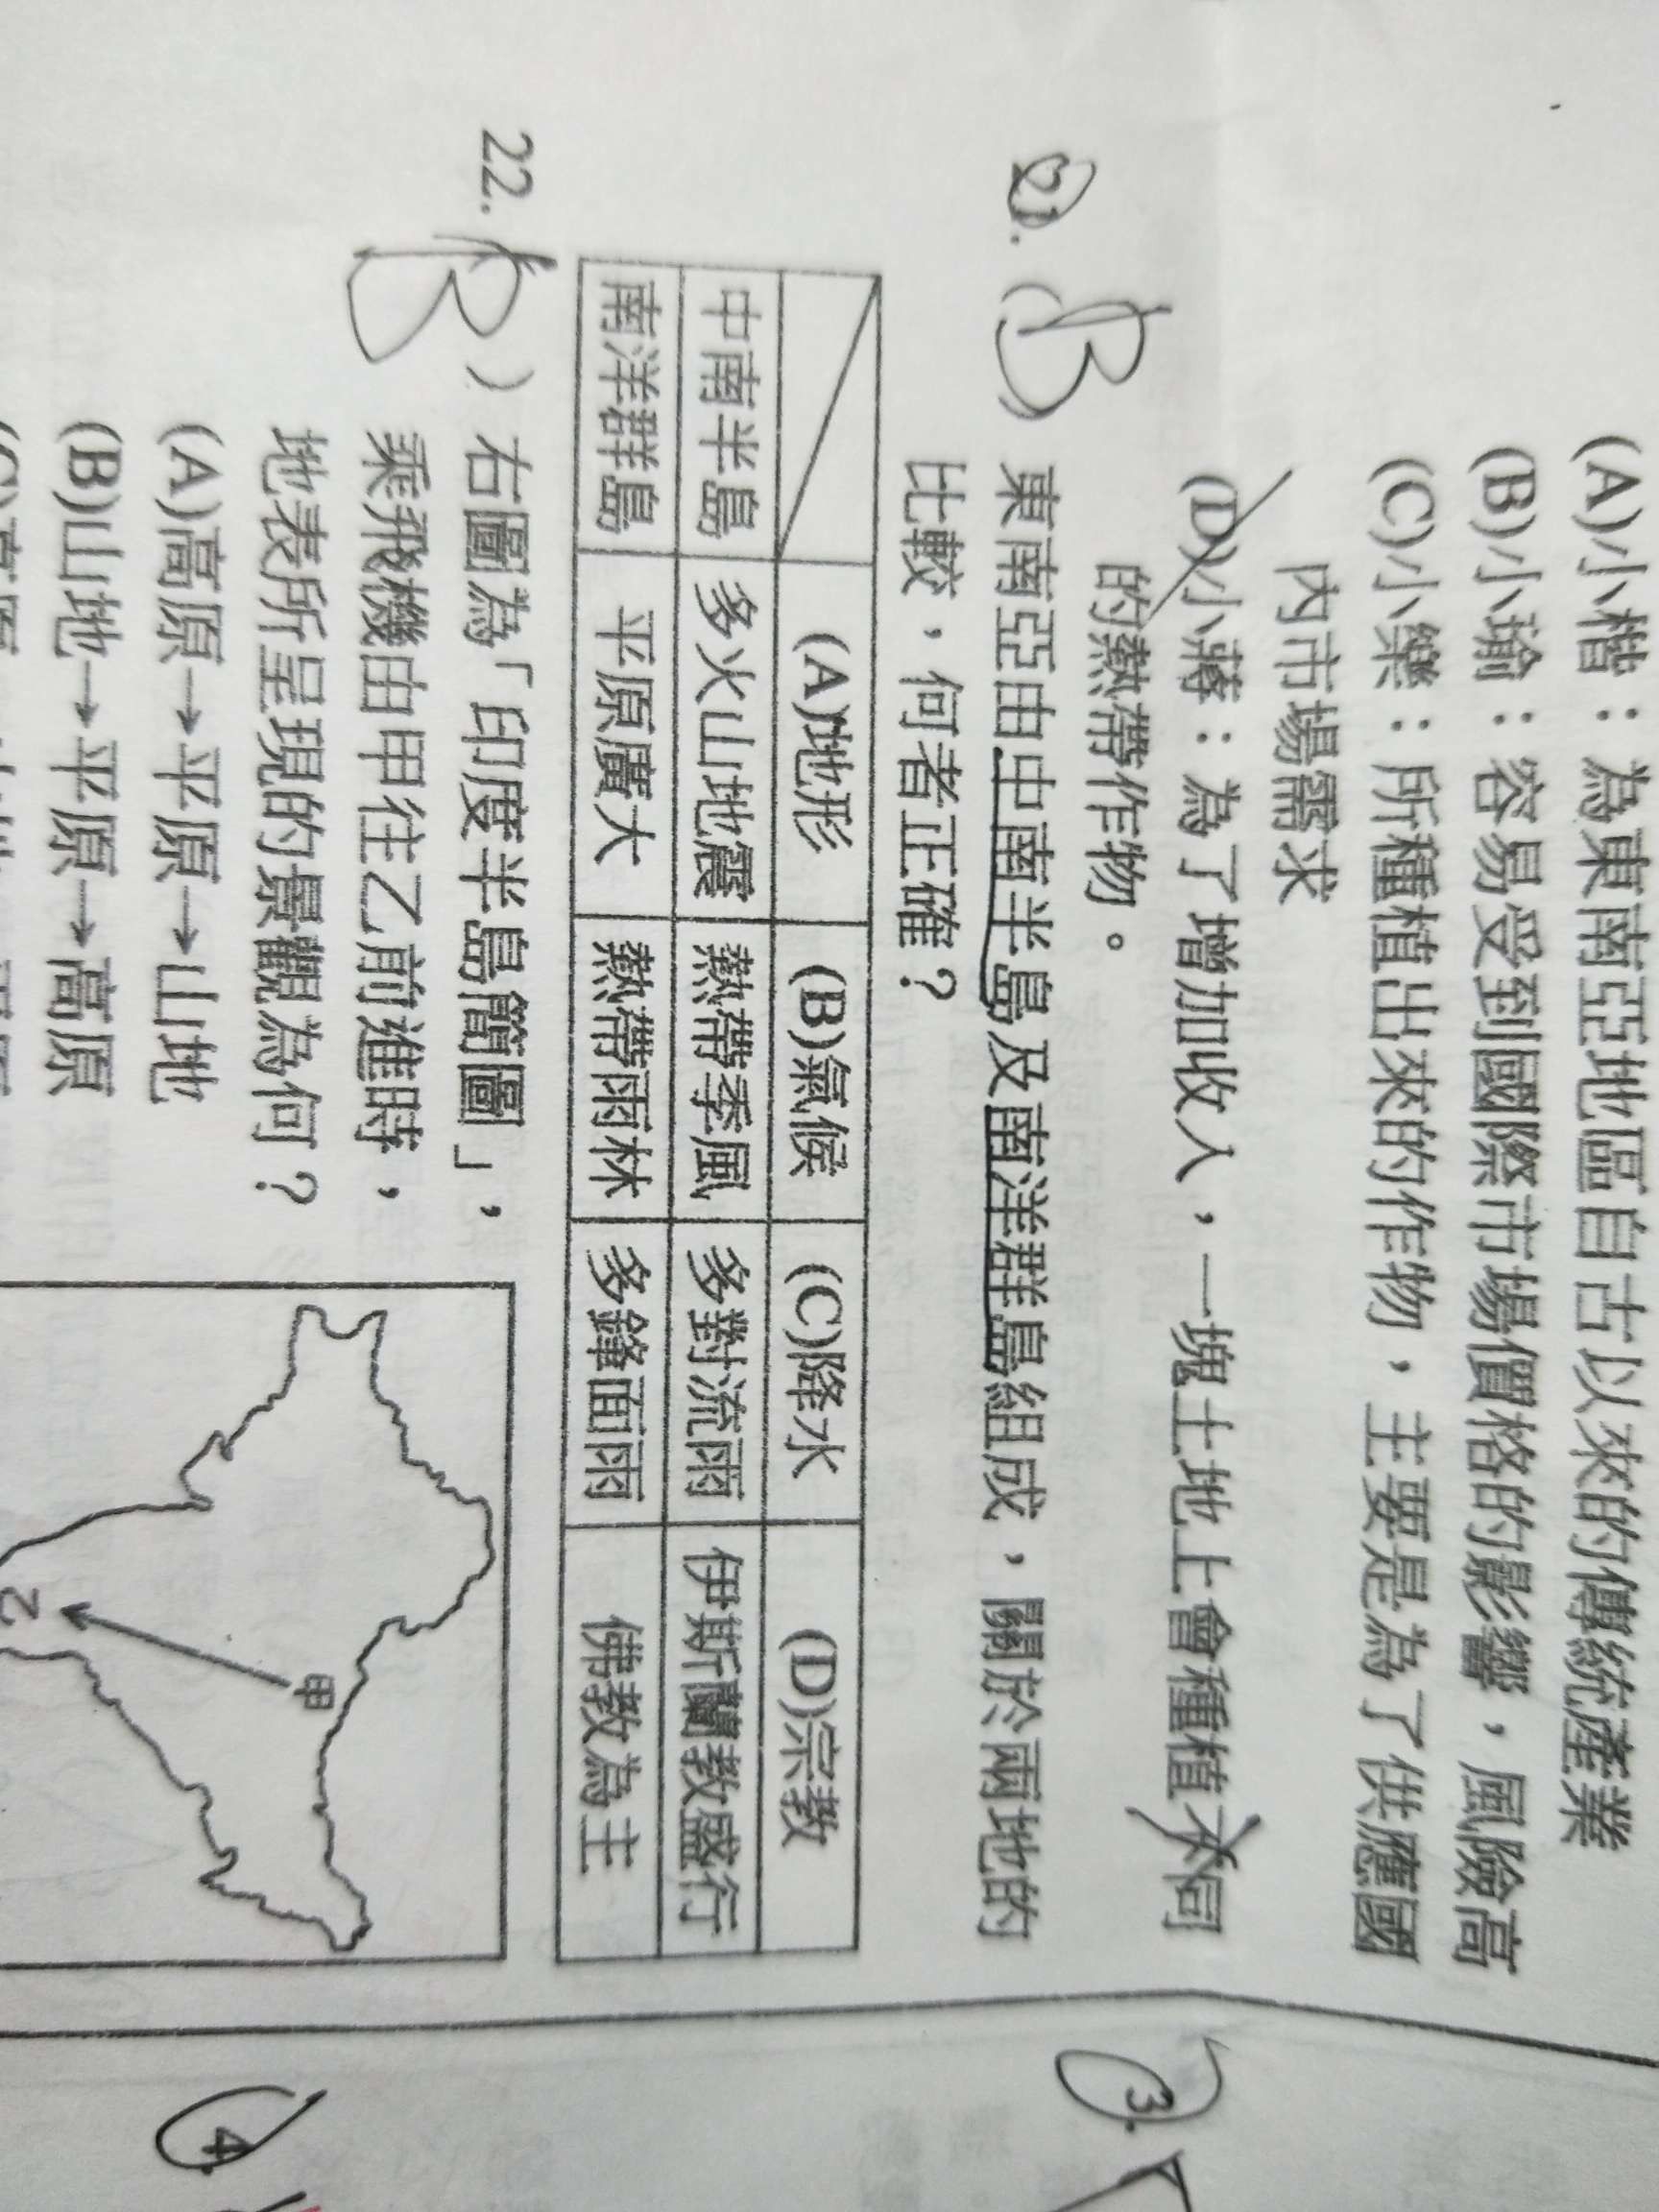 (A)小楷：為東南亞地區自古以來的傳統產業
(B)小瑜：容易受到國際市場價格的影響，風險高
(C)小樂：所種植出來的作物，主要是為了供應國
內市場需求
(D)小蔣：為了增加收入，一塊土地上會種植不同
的熱帶作物。
21. (B) 東南亞由中南半島及南洋群島組成，關於兩地的
比較，何者正確？
(A)地形 (B)氣候 (C)降水 (D)宗教
中南半島 多火山地震 熱帶季風 多對流雨 伊斯蘭教盛行
南洋群島 平原廣大 熱帶雨林 多鋒面雨 佛教為主
22. B ) 右圖為「印度半島簡圖」，
乘飛機由甲往乙前進時，
地表所呈現的景觀為何？
(A)高原→平原→山地
(B)山地→平原→高原
甲
乙
3.
4.